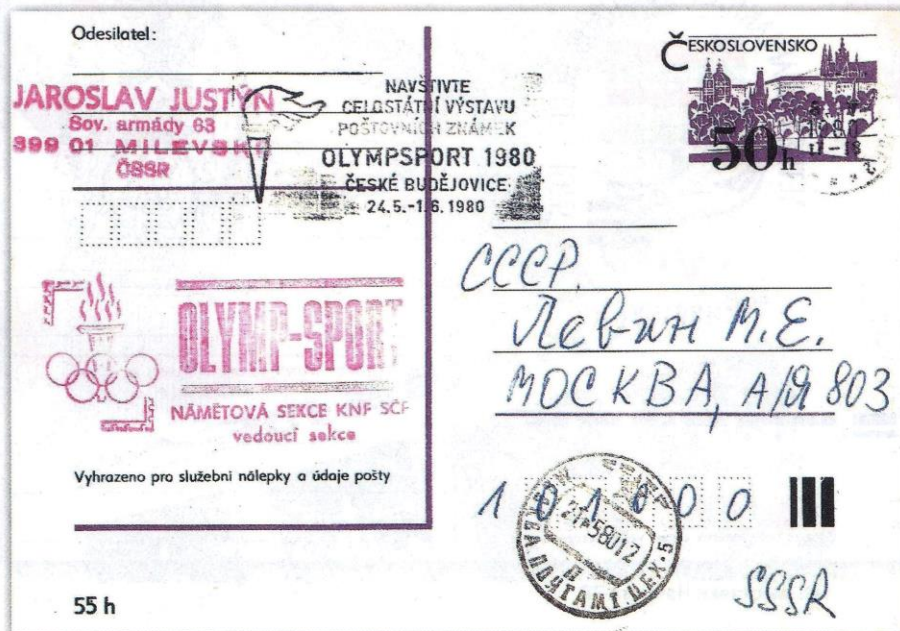 Odesilatel:
JAROSLAV JUSTÝN
Sov. armády 63
399 01 MILEVSKO
ČSSR
NAVŠTIVTE
CELOSTÁTNÍ VÝSTAVU
POŠTOVNÍCH ZNÁMEK
OLYMPSPORT 1980
ČESKÉ BUDĚJOVICE
24.5.-1.6.1980
ČESKOSLOVENSKO
50h
OLYMP-SPORT
NÁMĚTOVÁ SEKCE KNF SČF
vedoucí sekce
Vyhrazeno pro služební nálepky a údaje pošty
55 h
СССР.
Левин М.Е.
МОСКВА, А/Я 803
101000
ПОЧТАМТ. ЦЕХ. 5
SSSR